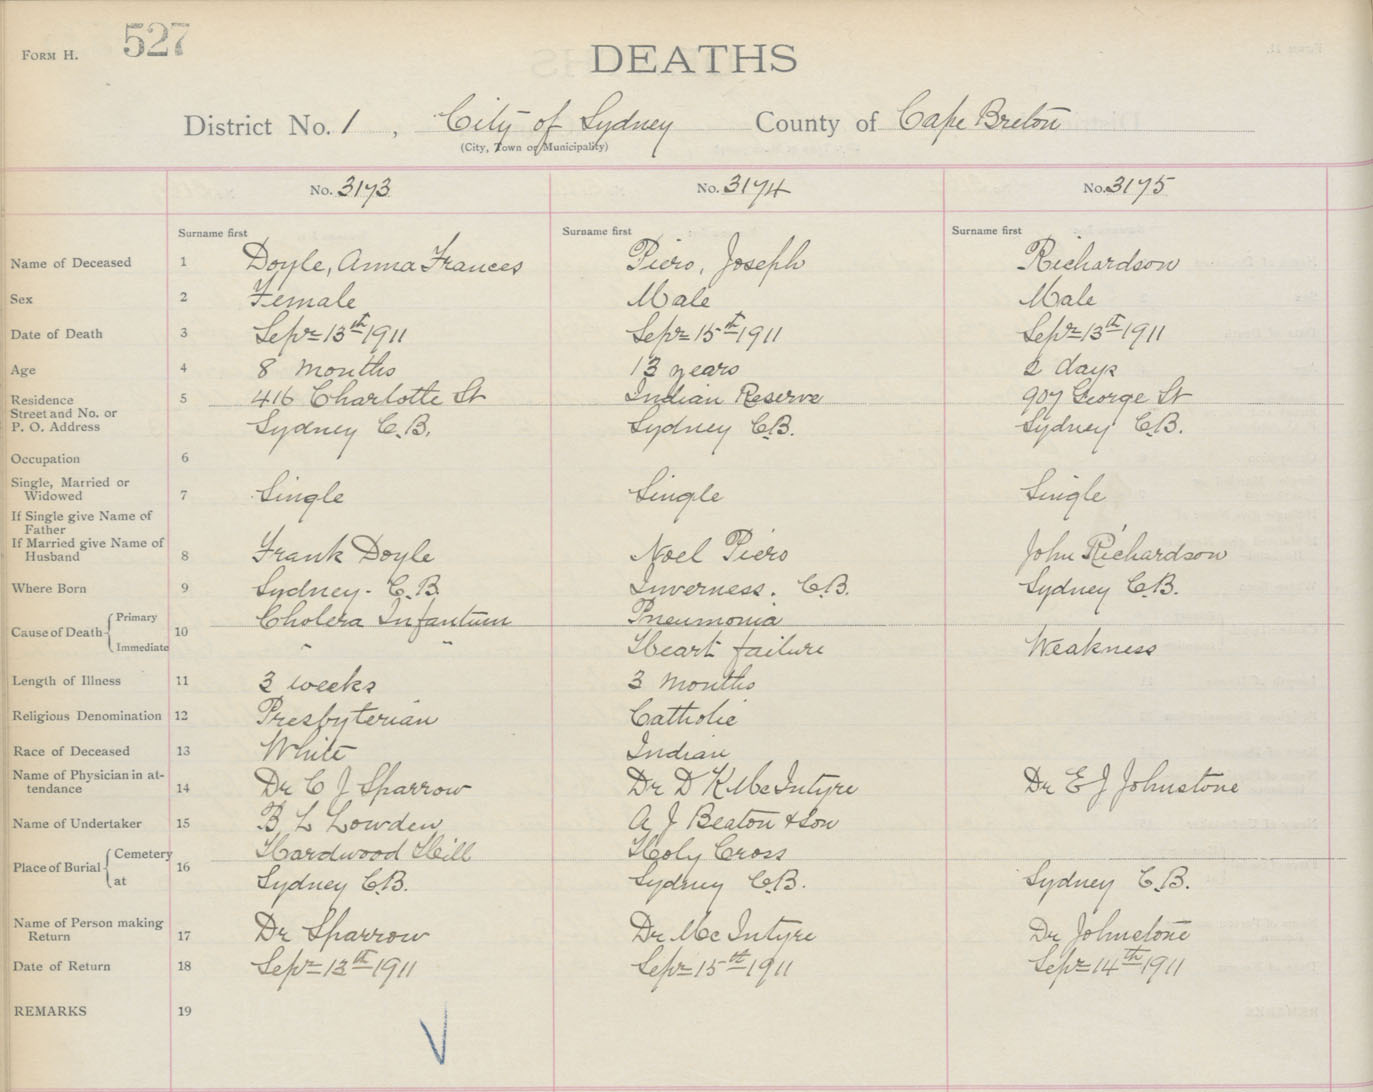 FORM H. 527
DEATHS
District No. 1, City of Sydney County of Cape Breton
(City, Town or Municipality)
No. 3173 No. 3174 No. 3175
Surname first Surname first Surname first
Name of Deceased 1 Doyle, Anna Frances Piero, Joseph Richardson
Sex 2 Female Male Male
Date of Death 3 Sepr 13th 1911 Sepr 15th 1911 Sepr 13th 1911
Age 4 8 months 13 years 2 days
Residence 5 416 Charlotte St Indian Reserve 907 George St
Street and No. or
P. O. Address Sydney C.B. Sydney C.B. Sydney C.B.
Occupation 6
Single, Married or
Widowed 7 Single Single Single
If Single give Name of
Father
If Married give Name of
Husband 8 Frank Doyle Noel Piero John Richardson
Where Born 9 Sydney - C.B. Inverness. C.B. Sydney C.B.
Cause of Death Primary 10 Cholera Infantum Pneumonia
Immediate " " Heart failure Weakness
Length of Illness 11 3 weeks 3 months
Religious Denomination 12 Presbyterian Catholic
Race of Deceased 13 White Indian
Name of Physician in at-
tendance 14 Dr C J Sparrow Dr D K McIntyre Dr E J Johnstone
Name of Undertaker 15 B L Lowden A J Beaton & Son
Place of Burial Cemetery 16 Hardwood Hill Holy Cross
at Sydney C.B. Sydney C.B. Sydney C.B.
Name of Person making
Return 17 Dr Sparrow Dr McIntyre Dr Johnstone
Date of Return 18 Sepr 13th 1911 Sepr 15th 1911 Sepr 14th 1911
REMARKS 19